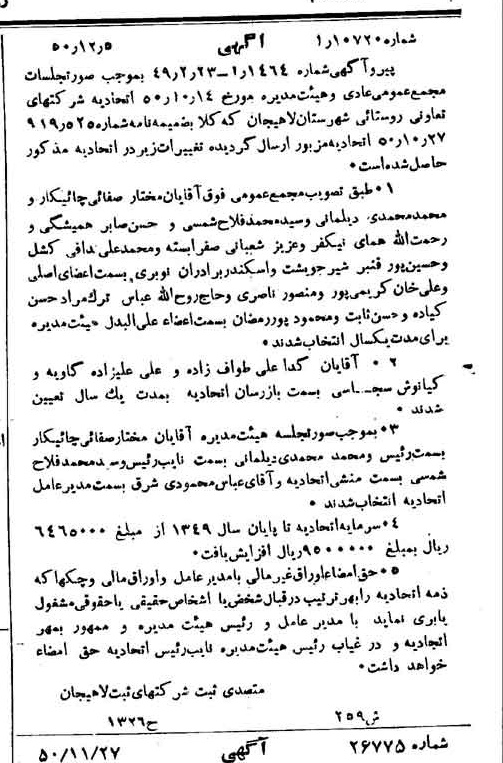 شماره ۱ر۱۰۷۲۰ آگهی ۵۰ر۱۲ر۵
پیرو آگهی شماره ۱ر۱۴۶۴-۴۹ر۲ر۲۳ بموجب صورتجلسات
مجمع عمومی عادی وهیئت مدیره مورخ ۵۰ر۱۰ر۱۴ اتحادیه شرکتهای
تعاونی روستائی شهرستان لاهیجان که کلا بضمیمه نامه شماره ۹۱۹ر۵۲۵
۵۰ر۱۰ر۲۷ اتحادیه مزبور ارسال گردیده تغییرات زیر در اتحادیه مذکور
حاصل شده است۰
۰۱ طبق تصویب مجمع عمومی فوق آقایان مختار صفائی چائیکار و
محمد محمدی دیلمانی وسید محمد فلاح شمسی و حسن صابر همیشگی و
رحمت الله همای نیکفر وعزیز شعبانی صفرابسته ومحمدعلی دافی کشل
وحسین پور قنبر شیرجوپشت واسکندر برادران نوبری بسمت اعضای اصلی
وعلی خان کریمی پور ومنصور ناصری وحاج روح الله عباس ترك مراد حسن
کیاده وحسن ثابت ومحمود پور رمضان بسمت اعضاء علی البدل هیئت مدیره
برای مدت یکسال انتخاب شدند۰
۲ ۰ آقایان گدا علی طواف زاده و علی علیزاده گاویه و
کیانوش سجـاسی بسمت بازرسان اتحادیه بمدت یك سال تعیین
شدند ۰
۰۳ بموجب صورتجلسه هیئت مدیره آقایان مختار صفائی چائیکار
بسمت رئیس ومحمد محمدی دیلمانی بسمت نایب رئیس وسید محمد فلاح
شمسی بسمت منشی اتحادیه و آقای عباس محمودی شرق بسمت مدیر عامل
اتحادیه انتخاب شدند ۰
۰۴ سرمایه اتحادیه تا پایان سال ۱۳۴۹ از مبلغ ۶۴۶۵۰۰۰
ریال بمبلغ ۹۵۰۰۰۰۰ ریال افزایش یافت۰
۰۵ حق امضاء اوراق غیر مالی با مدیر عامل واوراق مالی وچکها که
ذمه اتحادیه را بهر ترتیب در قبال شخص یا اشخاص حقیقی یا حقوقی مشغول
یا بری نماید با مدیر عامل و رئیس هیئت مدیره و ممهور بمهر
اتحادیه و در غیاب رئیس هیئت مدیره نایب رئیس اتحادیه حق امضاء
خواهد داشت۰
متصدی ثبت شرکتهای ثبت لاهیجان
ش ۲۵۹ ح ۱۳۲۶
شماره ۲۶۷۷۵ آگهی ۵۰/۱۱/۲۷